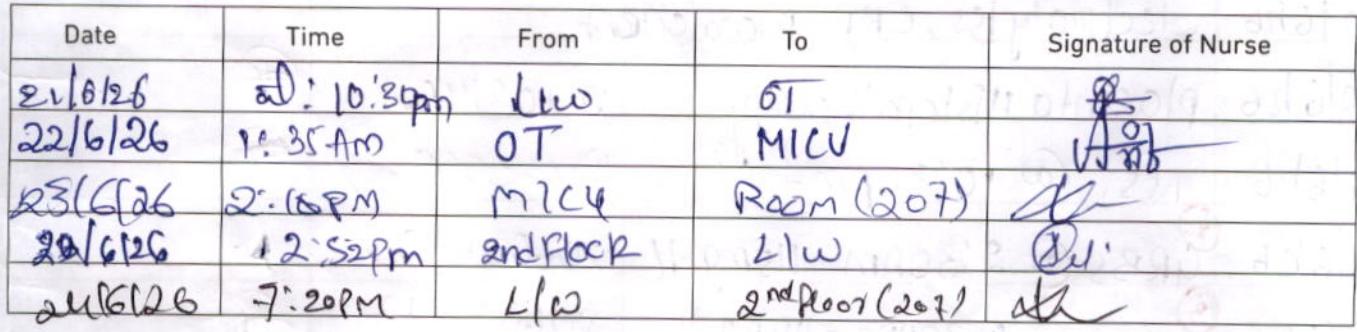 Date Time From To Signature of Nurse
21/6/26 10:30pm L/W OT
22/6/26 1:35 AM OT MICU
23/6/26 2:10PM MICU Room (207)
/6/26 2:52pm 2nd Flock L/W
24/6/26 7:20PM L/W 2nd floor (207)